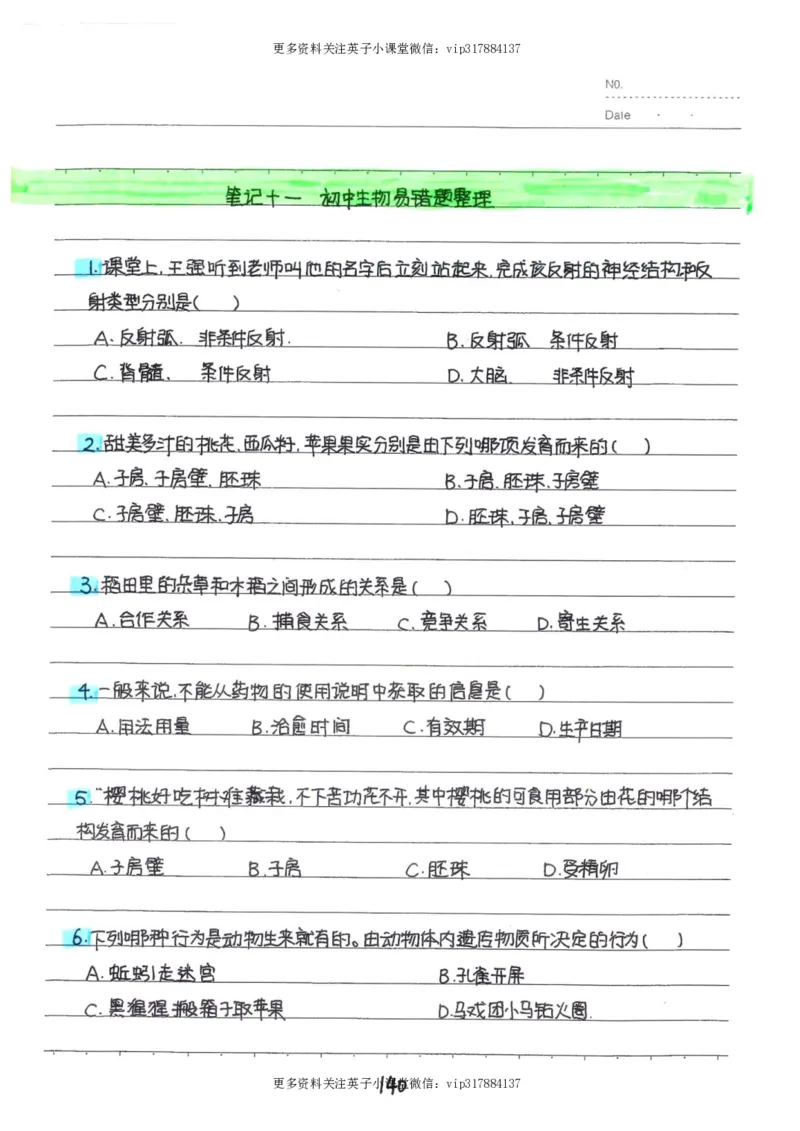 更多资料关注英子小课堂微信：vip317884137
NO.
Date · ·
笔记十一 初中生物易错题整理
1.课堂上,王强听到老师叫他的名字后立刻站起来,完成该反射的神经结构和反
射类型分别是( )
A.反射弧. 非条件反射. B.反射弧 条件反射
C.脊髓、 条件反射 D.大脑. 非条件反射
2.甜美多汁的桃花、西瓜籽,苹果果实分别是由下列哪项发育而来的( )
A.子房、子房壁、胚珠 B.子房、胚珠、子房壁
C.子房壁、胚珠、子房 D.胚珠,子房、子房壁
3.稻田里的杂草和水稻之间形成的关系是( )
A.合作关系 B.捕食关系 C.竞争关系 D.寄生关系
4.一般来说,不能从药物的使用说明中获取的信息是( )
A.用法用量 B.治愈时间 C.有效期 D.生产日期
5.“樱桃好吃树难栽,不下苦功花不开,其中樱桃的可食用部分由花的哪个结
构发育而来的( )
A.子房壁 B.子房 C.胚珠 D.受精卵
6.下列哪种行为是动物生来就有的。由动物体内遗传物质所决定的行为( )
A.蚯蚓走迷宫 B.孔雀开屏
C.黑猩猩搬箱子取苹果 D.马戏团小马钻火圈.
更多资料关注英子小课堂微信：vip317884137
140